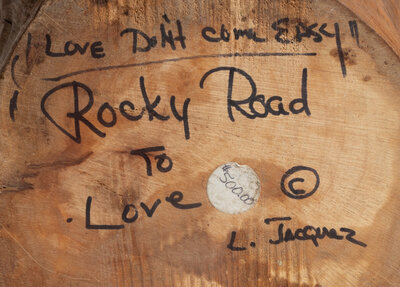 "Love Don't Come Easy"
Rocky Road
To
Love
$500.00
©
L. Jacquez